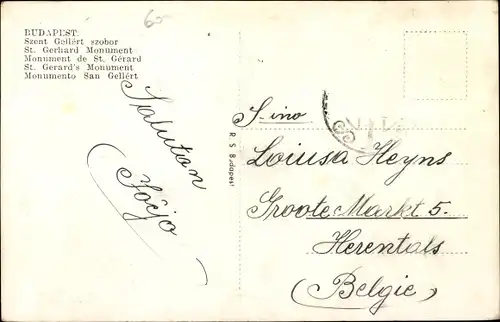 60
BUDAPEST:
Szent Gellért szobor
St. Gerhard Monument
Monument de St. Gérard
St. Gerard's Monument
Monumento San Gellért
Saluton
R S Budapest
S-ino
Loiusa Heyns
Groote Markt 5.
Herentals
(Belgie)